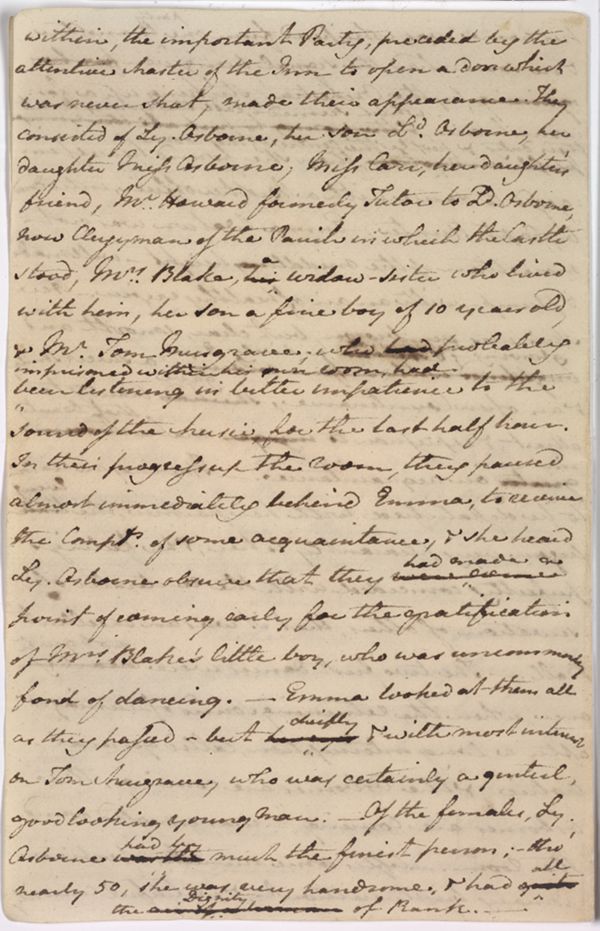 within, the important Party, preceded by the
attentive Master of the Inn to open a door which
was never shut, made their appearance. They
consisted of Ly. Osborne, her Son Ld. Osborne, her
daughter Miss Osborne; Miss Carr, her daughter's
friend, Mr. Howard formerly Tutor to Ld. Osborne,
now Clergyman of the Parish in which the Castle
stood, Mrs. Blake, his a widow-sister who lived
with him, her son a fine boy of 10 years old,
& Mr. Tom Musgrave; who had probably
imprisoned within his own room, had
been listening in bitter impatience to the
sound of the Music, for the last half hour.
In their progress up the room, they paused
almost immediately behind Emma, to receive
the Compts. of some acquaintance, & she heard
Ly. Osborne observe that they were come had made a
point of coming early for the gratification
of Mrs. Blake's little boy, who was uncommonly
fond of dancing. — Emma looked at them all
as they passed - but chiefly & with most interest
on Tom Musgrave, who was certainly a genteel,
good looking young Man. — Of the females, Ly.
Osborne was the had by much the finest person; - tho'
nearly 50, she was very handsome, & had quite all
the Dignity of Rank. —